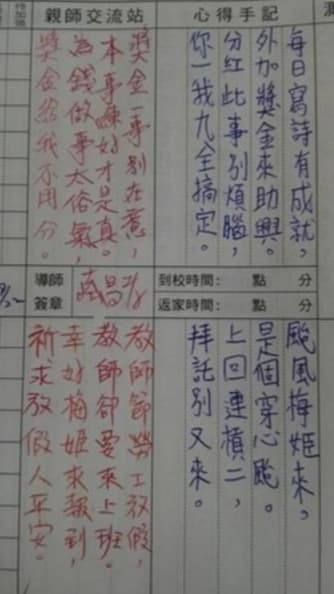 心得手記
每日寫詩有成就,
外加獎金來助興。
分紅此事別煩腦,
你一我九全搞定。
親師交流站
獎金一事別在意,
本事練好才是真。
為錢做事太俗氣,
獎金給我不用分。
到校時間: 點 分
返家時間: 點 分
導師
簽章
颱風梅姬來,
是個穿心颱。
上回連槓二,
拜託別又來。
教師節勞工放假,
教師卻要來上班。
幸好梅姬來報到,
祈求放假人平安。